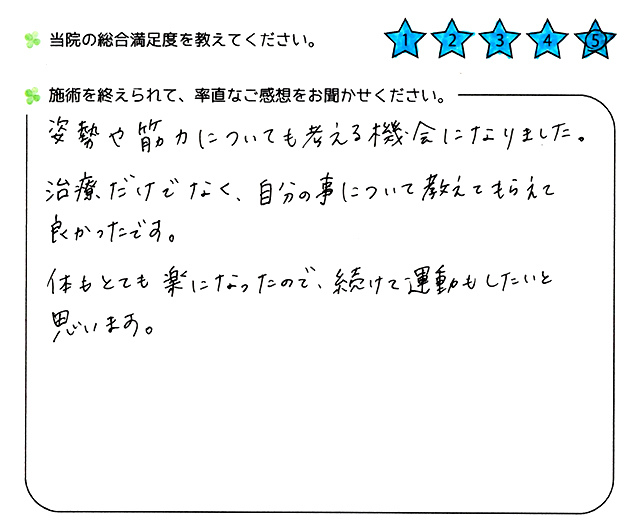 当院の総合満足度を教えてください。 1 2 3 4 5
施術を終えられて、率直なご感想をお聞かせください。
姿勢や筋力についても考える機会になりました。
治療だけでなく、自分の事について教えてもらえて
良かったです。
体もとても楽になったので、続けて運動もしたいと
思います。